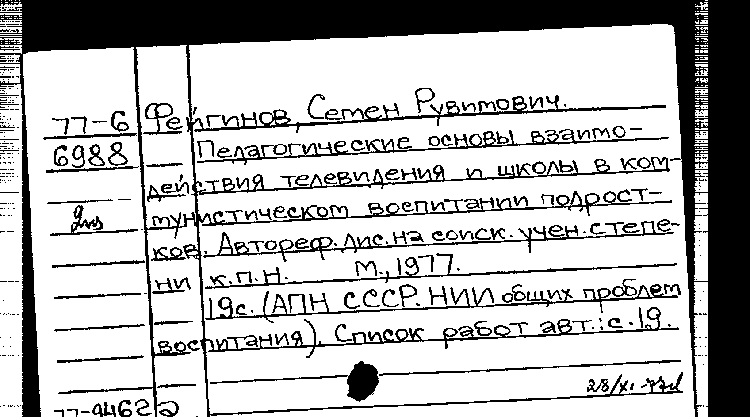 77-6 Фейгинов, Семен Рувимович.
6988 Педагогические основы взаимо-
действия телевидения и школы в ком-
мунистическом воспитании подрост-
ков. Автореф. дис. на соиск. учен. степе-
ни к.п.н. М., 1977.
19с. (АПН СССР. НИИ общих проблем
воспитания). Список работ авт.: с.19.
28/XI-77
77-9462